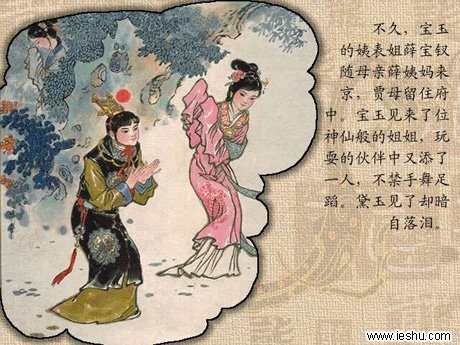 不久，宝玉
的姨表姐薛宝钗
随母亲薛姨妈来
京，贾母留住府
中。宝玉见来了位
神仙般的姐姐，玩
耍的伙伴中又添了
一人，不禁手舞足
蹈。黛玉见了却暗
自落泪。
www.ieshu.com